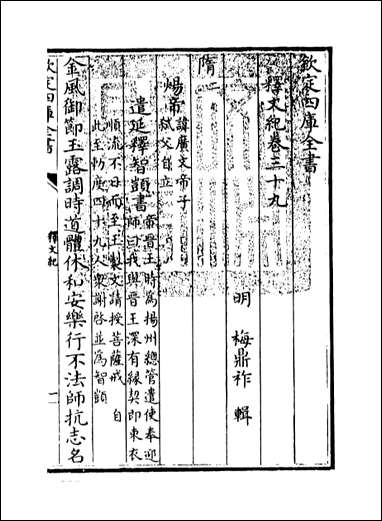 欽定四庫全書
釋文紀卷三十九
明 梅鼎祚 輯
隋二
煬帝 諱廣文帝子
弑父自立
遣延釋智顗書 帝晉王時為揚州總管遣使奉迎
師曰我與晉王深有緣契即束衣
順流不日而至王製文請授菩薩戒 自
此至忉度四十九人衆謝啓並為智顗
金風御節玉露調時道體休和安樂行不法師抗志名
欽定四庫全書
釋文紀
一